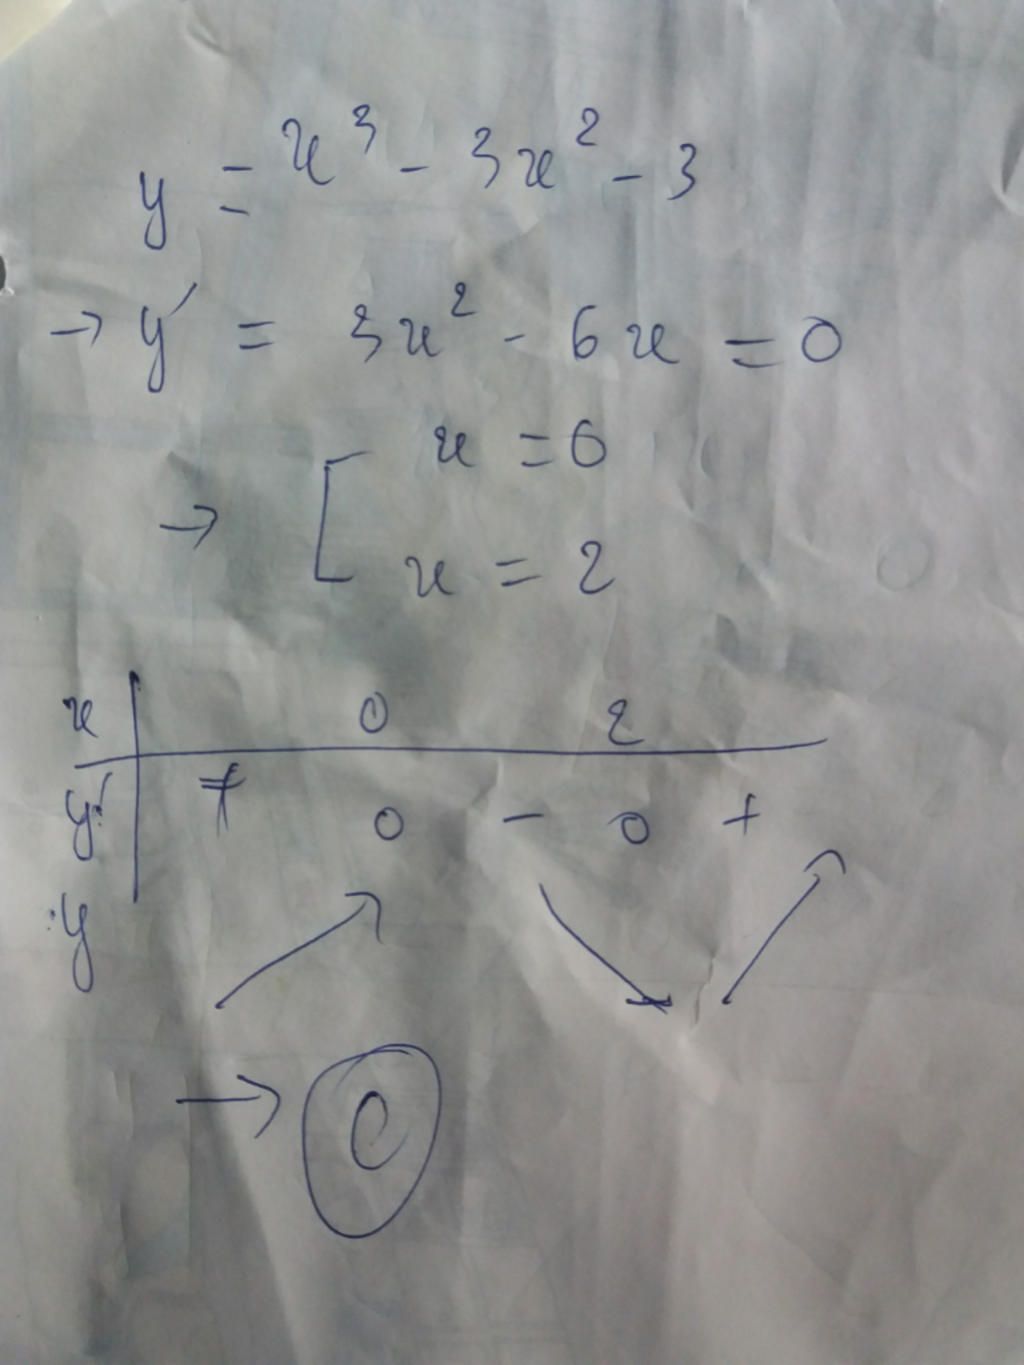 y = x³ - 3x² - 3
→ y' = 3x² - 6x = 0
→ [ x = 0
x = 2
x 0 2
y' + 0 - 0 +
y ↗ ↘ ↗
→ 0